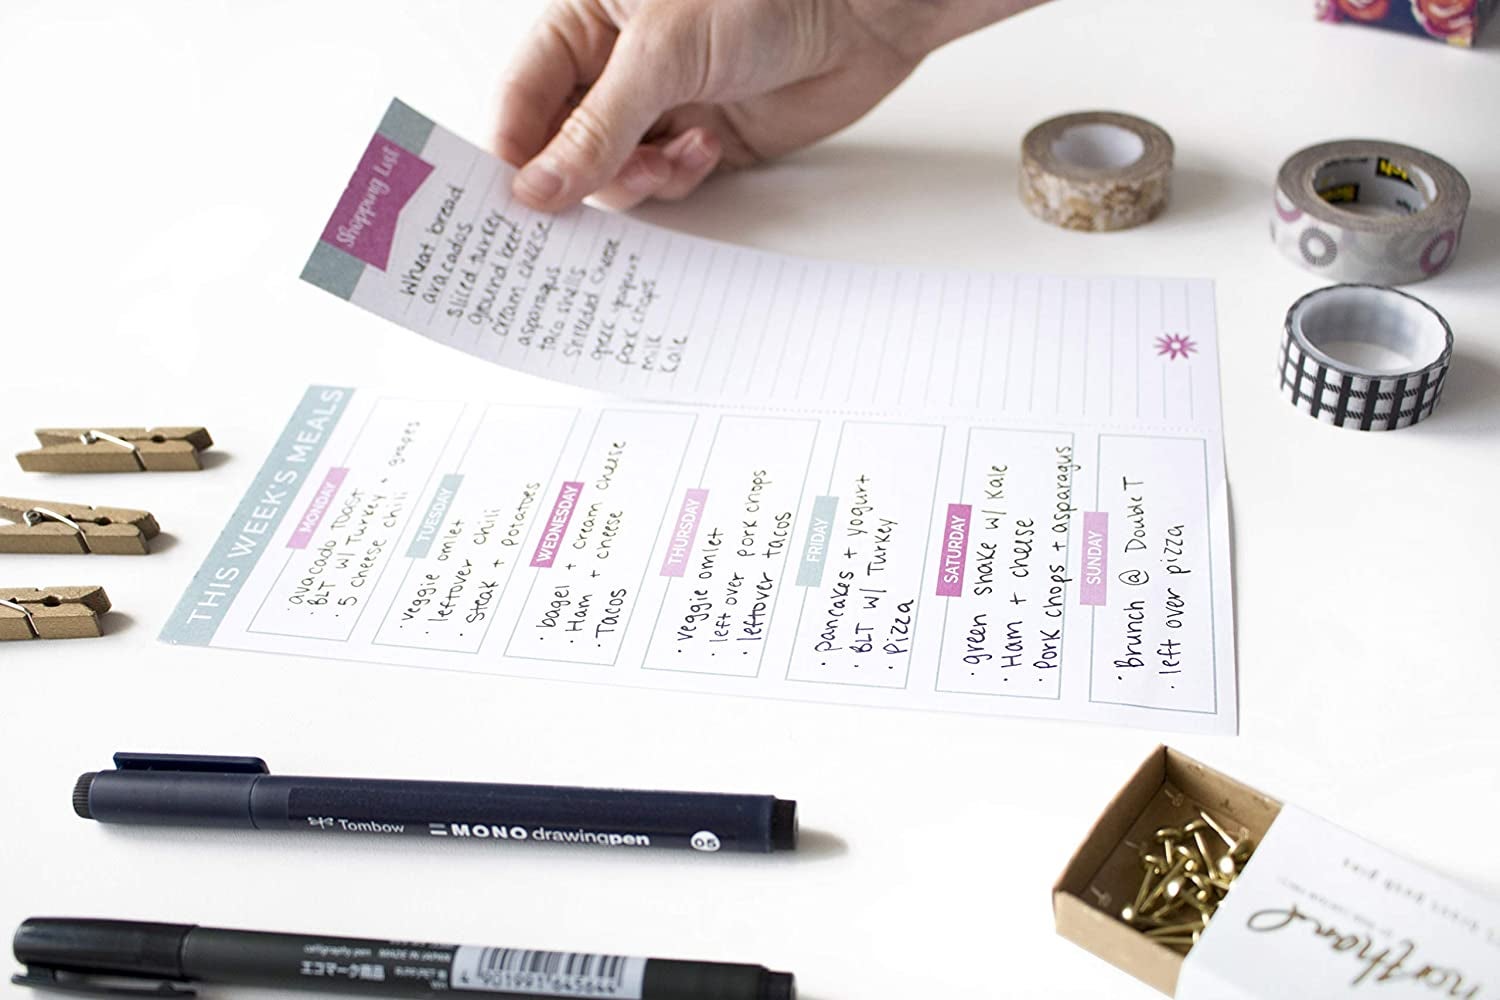 Shopping List
wheat bread
avacados
sliced turkey
ground beef
cream cheese
asparagus
taco shells
shredded cheese
greek yogurt
pork chops
milk
Kale
THIS WEEK'S MEALS
MONDAY
· avacado toast
· BLT w/ Turkey + grapes
· 5 cheese chili
TUESDAY
· veggie omlet
· leftover chili
· Steak + potatoes
WEDNESDAY
· bagel + cream cheese
· Ham + cheese
· Tacos
THURSDAY
· veggie omlet
· left over pork chops
· leftover tacos
FRIDAY
· pancakes + yogurt
· BLT w/ Turkey
· Pizza
SATURDAY
· green shake w/ Kale
· Ham + cheese
· Pork chops + asparagus
SUNDAY
· Brunch @ Double T
· left over pizza
Tombow MONO drawingpen 05
calligraphy pen MADE IN JAPAN
エコマーク商品
4901991645644
northand